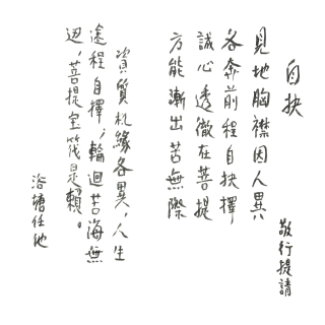 自抉
敬行提請
見地胸襟因人異
各奔前程自抉擇
誠心透徹在菩提
方能漸出苦無際
資質机緣各異，人生
途程自擇，輪迴苦海無
迎，菩提宝筏是賴。